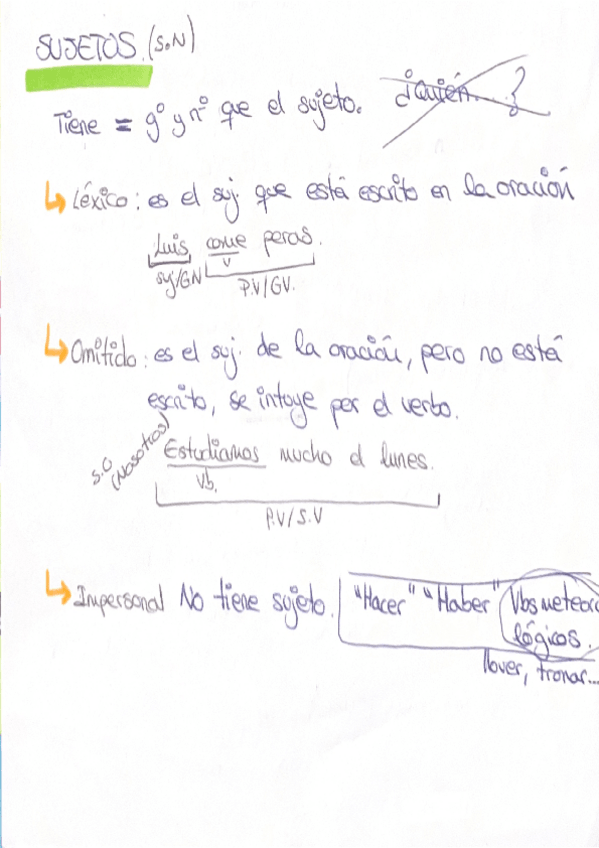 SUJETOS. (S.N)
Tiene = gº y nº que el sujeto. ¿Quién...?
Léxico: es el suj. que está escrito en la oración
Luis come peras.
suj/GN V
P.V/GV.
Omitido: es el suj. de la oración, pero no está
escrito, se intuye por el verbo.
S.O (Nosotros) Estudiamos mucho el lunes.
Vb.
P.V/S.V
Impersonal No tiene sujeto. "Hacer" "Haber" Vbs meteoro
lógicos.
llover, tronar...